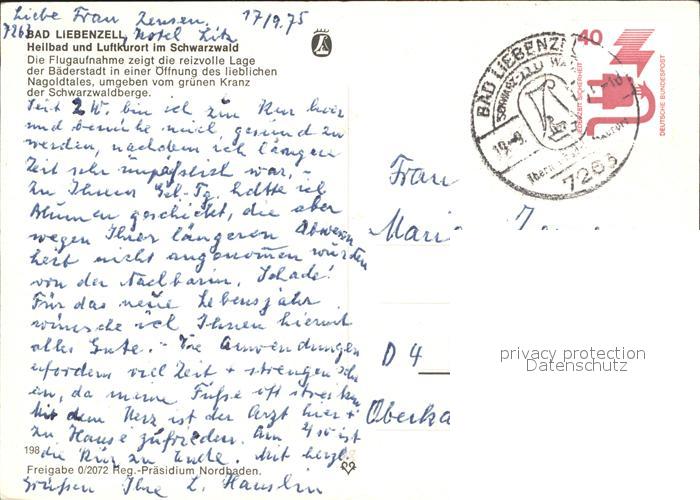 Liebe Frau Zensen, 17/9.75
7263 BAD LIEBENZELL, Hotel Litz
Heilbad und Luftkurort im Schwarzwald
Die Flugaufnahme zeigt die reizvolle Lage
der Bäderstadt in einer Öffnung des lieblichen
Nagoldtales, umgeben vom grünen Kranz
der Schwarzwaldberge.
Seit 2 W. bin ich zur Kur hier
und bemühe mich, gesund zu
werden, nachdem ich längere
Zeit sehr unpässlich war, -
Zu Ihrem Geb.-Tg. hatte ich
Blumen geschickt, die aber
wegen Ihrer längeren Abwesen
heit nicht angenommen wurden
von der Nachbarin. Schade!
Für das neue Lebensjahr
wünsche ich Ihnen hiermit
alles Gute. - Die Anwendungen
erfordern viel Zeit + strengen sehr
an, da meine Füße oft streiken
Mit dem Herz ist der Arzt hier +
zu Hause zufrieden. Am ist
die Kur zu Ende. Mit herzl.
Grüßen Ihre L. Hauslin
198
Freigabe 0/2072 Reg.-Präsidium Nordbaden.
BAD LIEBENZELL
7263
40
JEDERZEIT SICHERHEIT
DEUTSCHE BUNDESPOST
Frau
D 4
privacy protection
Datenschutz